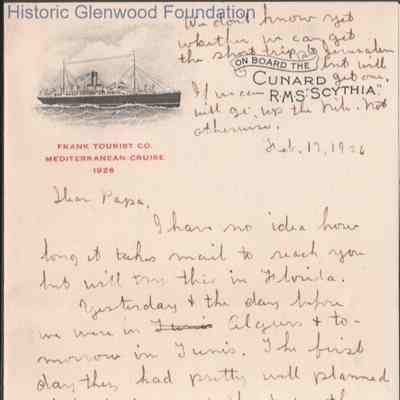 Historic Glenwood Foundation
We don't know yet
whether we can get
the short trip to Jerusalem
but will
get one.
If we can
will go up the Nile. Not
otherwise.
ON BOARD THE
CUNARD
R.M.S. "SCYTHIA"
FRANK TOURIST CO.
MEDITERRANEAN CRUISE
1926
Feb. 17, 1926
Dear Papa,
I have no idea how
long it takes mail to reach you
but will try this in Florida.
Yesterday & the day before
we were in Tunis Algiers & to-
morrow in Tunis. The first
day they had pretty well planned